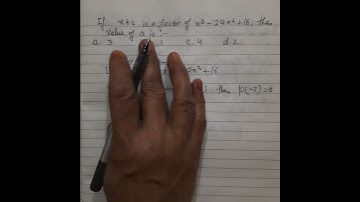 If x+2 is a factor of x³-2ax²+16, then
value of a is :-
a. 3 1 c. 4 d. 2
x²+16
then p(-2)=0